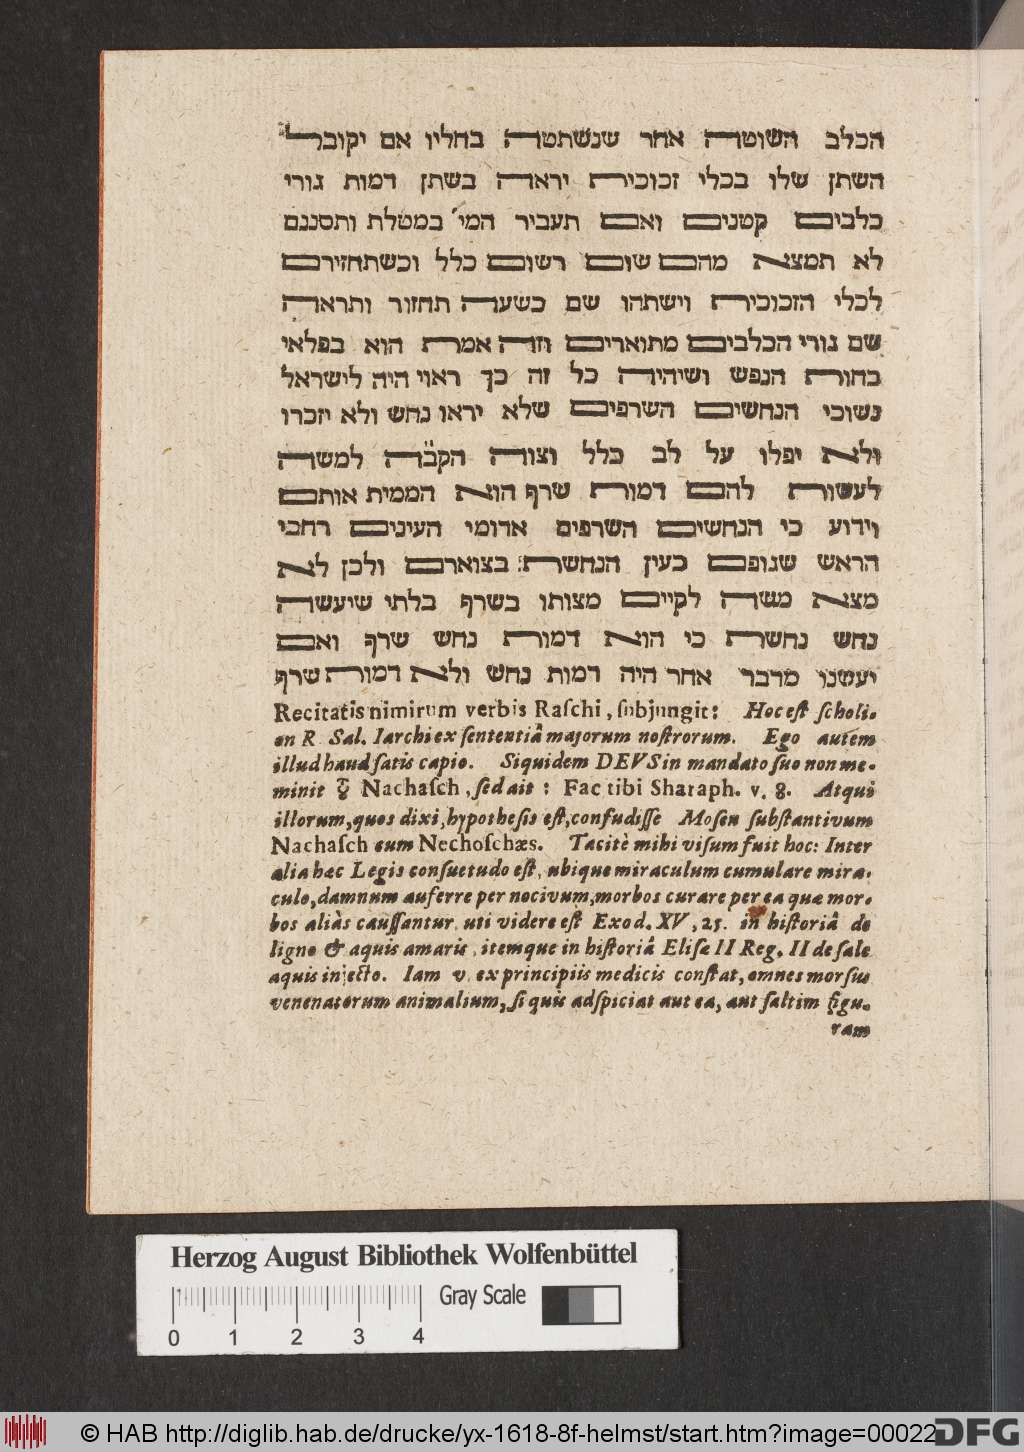 הכלב השוטה אחר שנשתטה בחליו אם יקובל
השתן שלו בכלי זכוכית יראה בשתן דמות גורי
כלבים קטנים ואם תעביר המי׳ במטלת ותסננם
לא תמצא מהם שום רשום כלל וכשתחזירם
לכלי הזכוכית וישתהו שם כשעה תחזור ותראה
שם גורי הכלבים מתוארים וזה אמת הוא בפלאי
כחות הנפש ושיהיה כל זה כך ראוי היה לישראל
נשוכי הנחשים השרפים שלא יראו נחש ולא יזכרו
ולא יפלו על לב כלל וצוה הקב״ה למשה
לעשות להם דמות שרף הוא הממית אותם
וידוע כי הנחשים השרפים אדומי העינים רחבי
הראש שגופם כעין הנחשת: בצוארם ולכן לא
מצא משה לקיים מצותו בשרף בלתי שיעשה
נחש נחשת כי הוא דמות נחש שרף ואם
יעשנו מדבר אחר היה דמות נחש ולא דמות שרף
Recitatis nimirum verbis Raſchi, ſubjungit: Hoc eſt ſcholi-
on R. Sal. Iarchi ex ſententiâ majorum noſtrorum. Ego autem
illud haud ſatis capio. Siquidem DEVS in mandato ſuo non me-
minit Nachaſch, ſed ait: Fac tibi Sharaph. v. 8. Atqui
illorum, quos dixi, hypotheſis eſt, confudiſſe Moſen ſubſtantivum
Nachaſch cum Nechoſchæs. Tacitè mihi viſum fuit hoc: Inter
alia hæc Legis conſuetudo eſt, ubique miraculum cumulare mira-
culo, damnum auferre per nocivum, morbos curare per ea quæ mor-
bos aliàs cauſſantur. uti videre eſt Exod. XV, 25. in hiſtoriâ de
ligno & aquis amaris, itemque in hiſtoriâ Eliſæ II Reg. II de ſale
aquis injecto. Iam v. ex principiis medicis conſtat, omnes morſus
venenatorum animalium, ſi quis adſpiciat aut ea, aut ſaltim figu-
ram
Herzog August Bibliothek Wolfenbüttel
Gray Scale
0 1 2 3 4
© HAB http://diglib.hab.de/drucke/yx-1618-8f-helmst/start.htm?image=00022
DFG